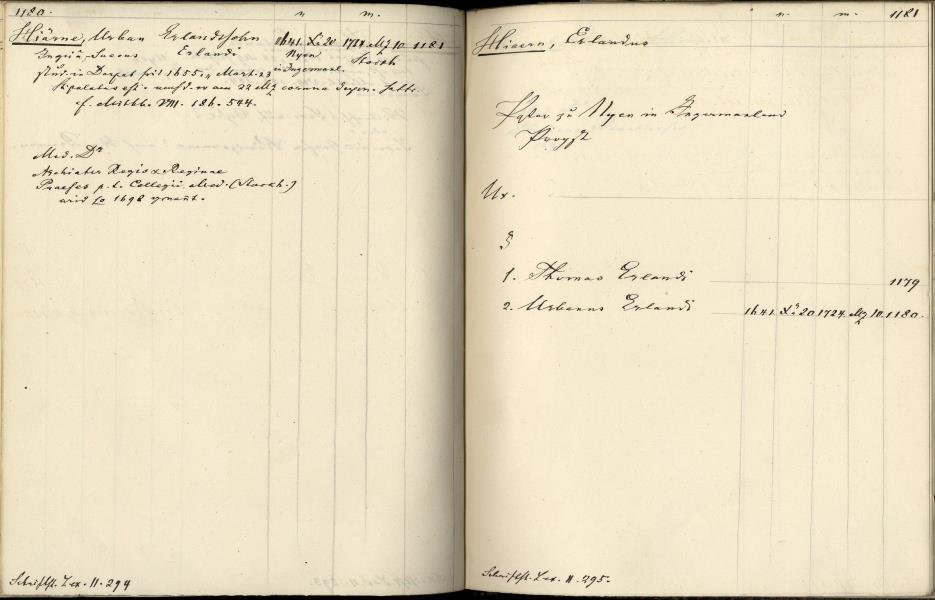 1180.
n. m.
Hiärne, Urban Erlandssohn 1641. Xr 20 1724 Mz 10. 1181
Ingriâ-Suecus Erlandi Nyen Stockh
stud. in Dorpat seit 1655, Mart. 23 in Ingermanl.
am 22 Mz corona
cf. Mitthl. VIII. 186. 544.
Med. Dr
Archiater Regis & Reginae
Praeses p. t. Collegii Med. (Stockh.)
wird so 1698 genannt.
Schriftst. Lex. II. 294
n. m. 1181
Hiaern, Erlandus
Pastor zu Nyen in Ingermanland
Propst
Ux.
1. Thomas Erlandi 1179
2. Urbanus Erlandi 1641. Xr 20. 1724. Mz 10. 1180.
Schriftst. Lex. II. 295.